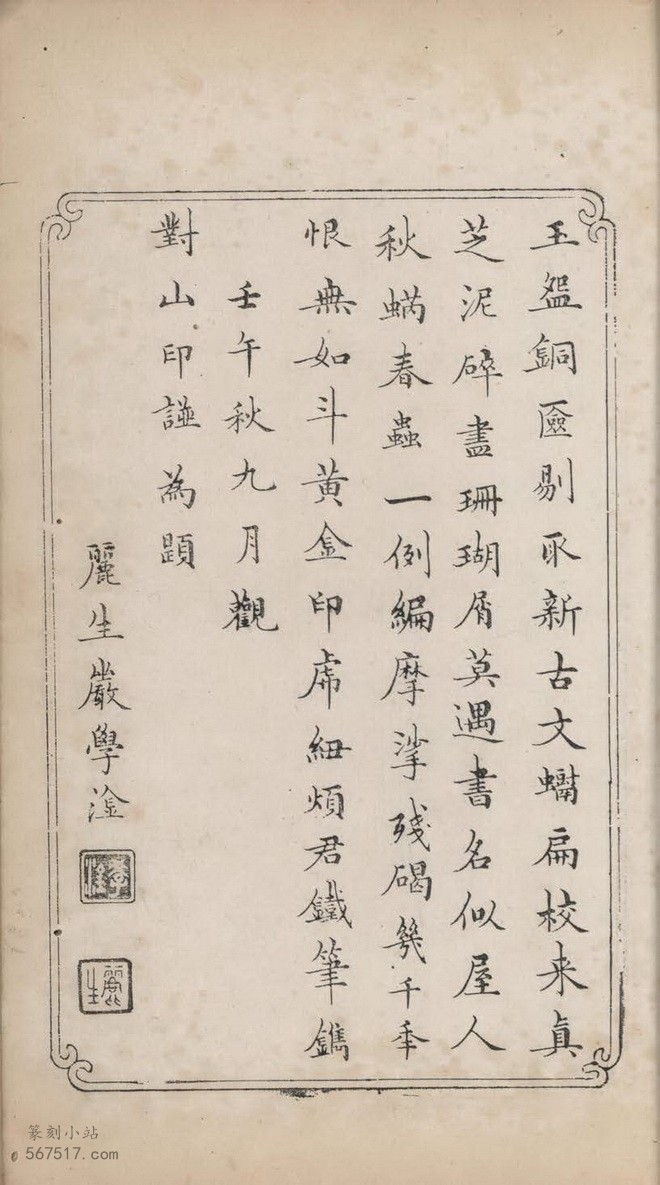 玉盌銅匳剔取新古文蟎扁校来真
芝泥碎盡珊瑚屑莫遇書名似屋人
秋蝸春蟲一例編摩挲殘碣幾千年
恨無如斗黃金印虎紐煩君鐵筆鐫
壬午秋九月觀
對山印譜為題
麗生嚴學淦
麗生
篆刻小站
567517.com